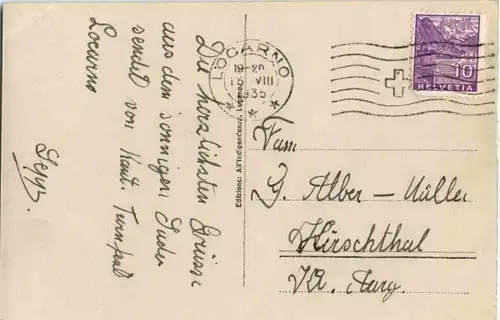 Die herzlichsten Grüsse
aus dem sonnigen Süden
sendet vom Kant. Turnfest
Locarno
Sepp.
Edizione: All'Indipendenza, Lugano
LOCARNO
19-20
VIII
935
10
HELVETIA
Fam.
G. Alber - Müller
Hirschthal
Kt. Aarg.